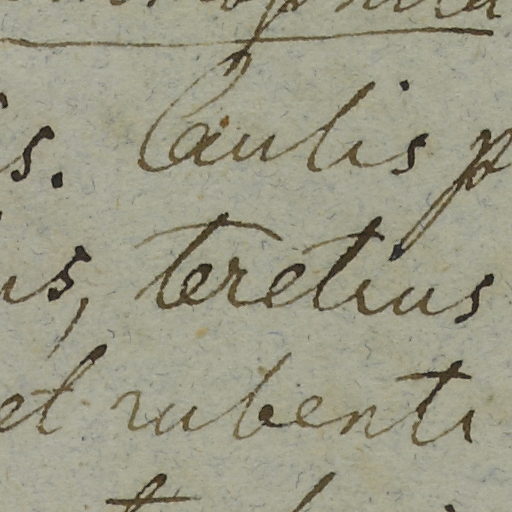 is. Caulis p
us, teretius
et rubenti